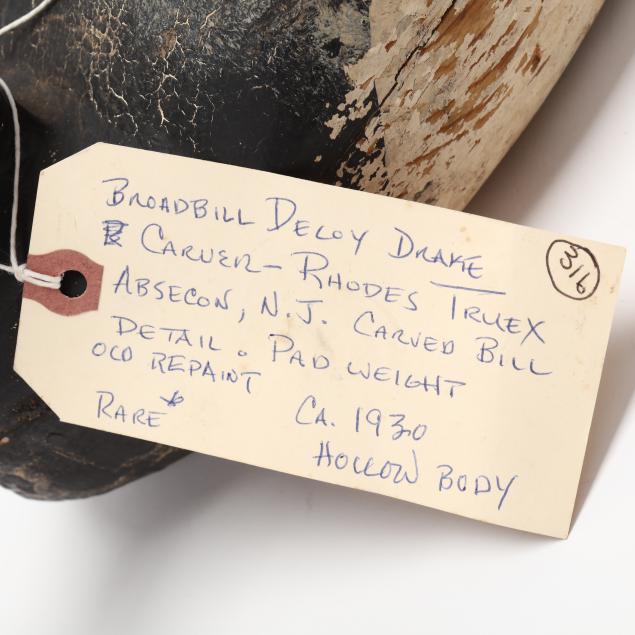 BROADBILL DECOY DRAKE
CARVER - RHODES TRUEX
ABSECON, N.J. CARVED BILL
DETAIL. PAD WEIGHT
OLD REPAINT
RARE *
CA. 1930
HOLLOW BODY
316